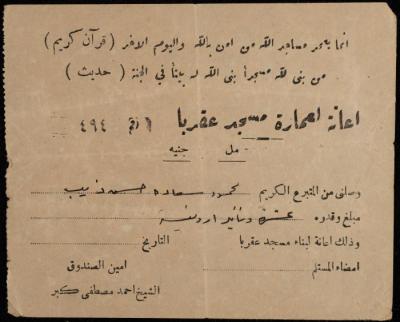 انما يعمر مساجد الله من امن بالله واليوم الاخر ( قرآن كريم )
من بنى لله مسجداً بنى الله له بيتاً في الجنة ( حديث )
اعانة اعمارة مسجد عقربا رقم ٤٩٤
مل جنيه
وصلني من المتبرع الكريم محمود سعاده حسن ذيب
مبلغ وقدره عشرة دنانير اردنية
وذلك اعانة لبناء مسجد عقربا التاريخ
امضاء المستلم امين الصندوق
الشيخ احمد مصطفى كبر